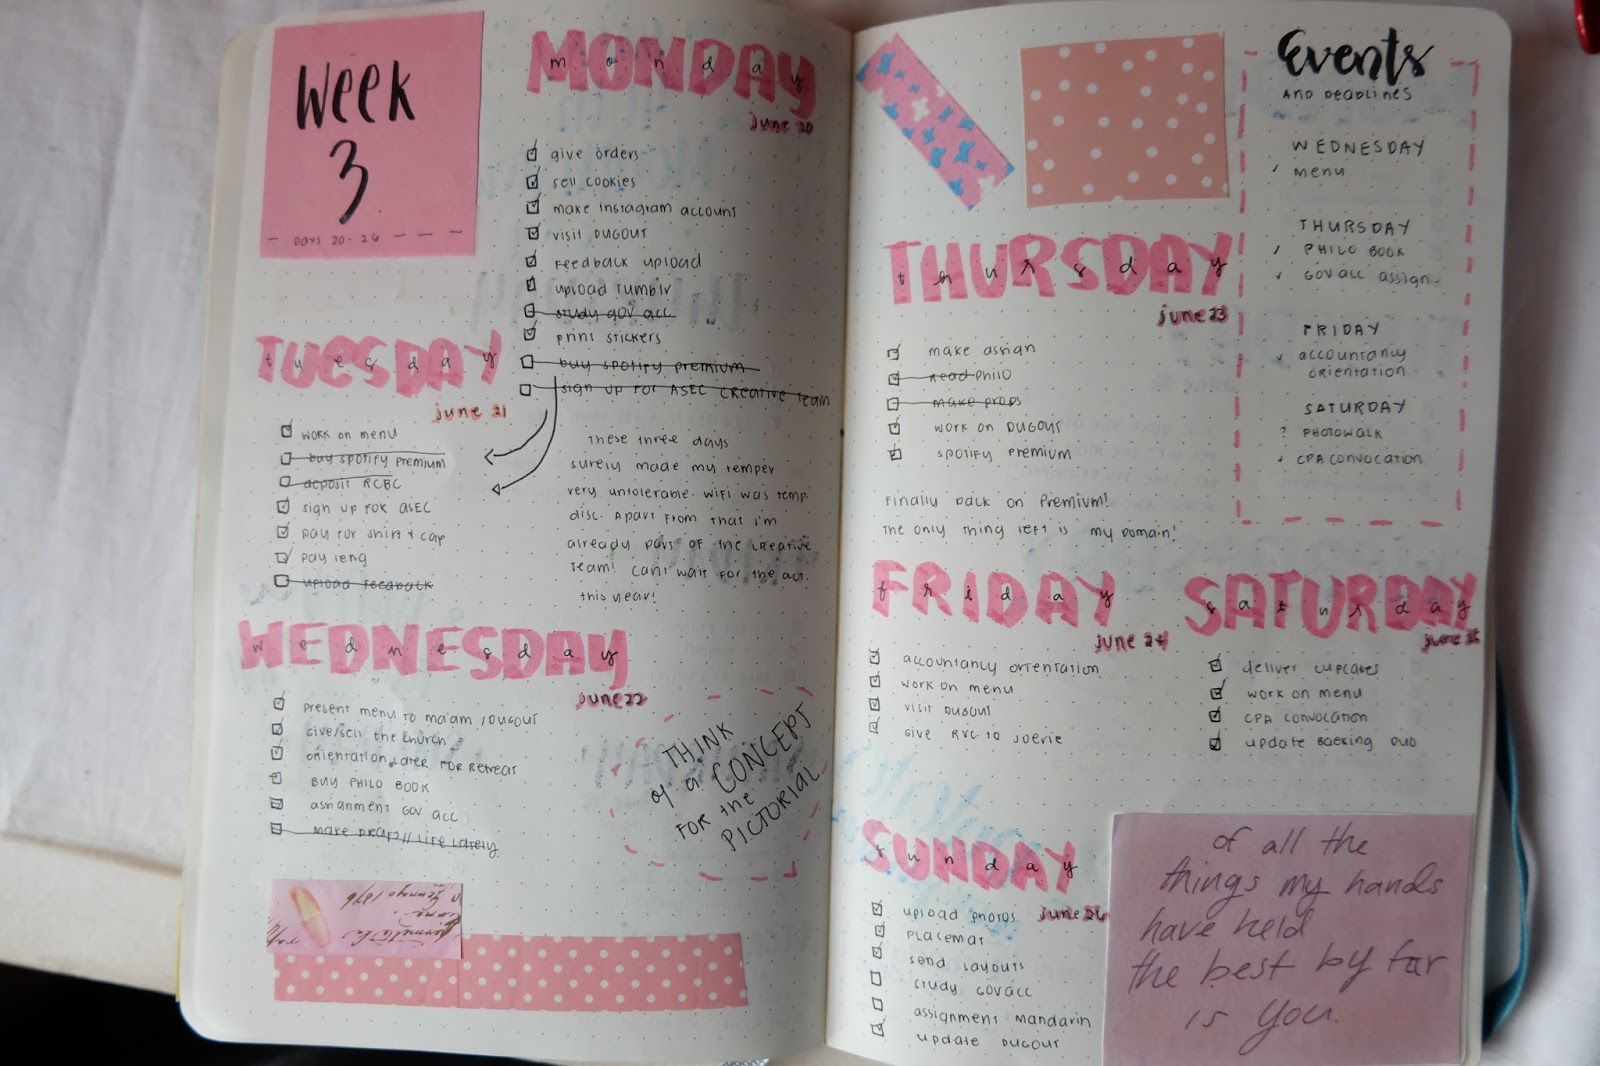 Week
3
DAYS 20-26
MONDAY
monday
june 20
give orders
sell cookies
make instagram account
visit DUGOUT
Feedback upload
upload tumblr
study gov acc
print stickers
buy spotify premium
sign up for ASEC creative team
These three days
surely made my temper
very untolerable. wifi was temp.
disc. Apart from that i'm
already part of the creative
team! Can't wait for the act.
this year!
TUESDAY
tuesday
june 21
work on menu
buy spotify premium
deposit RCBC
sign up for asec
pay for shirt + cap
pay
upload feedback
WEDNESDAY
wednesday
june 22
present menu to ma'am / DUGOUT
give/sell the church
orientation later FOR retreat
BUY PHILO BOOK
assignment GOV acc
make draft // life lately
THINK
of a CONCEPT
FOR the
PICTORIAL
THURSDAY
thursday
june 23
make assign
read philo
make props
work on DUGOUT
spotify premium
Finally back on Premium!
the only thing left is my domain!
Events
AND DEADLINES
WEDNESDAY
menu
THURSDAY
PHILO BOOK
GOV acc assign.
FRIDAY
accountancy
orientation
SATURDAY
? PHOTOWALK
CPA CONVOCATION
FRIDAY
friday
june 24
accountancy orientation
work on menu
visit DUGOUT
give RVC to joerie
SATURDAY
saturday
june 25
deliver cupcakes
work on menu
CPA convocation
update DUO
SUNDAY
sunday
june 26
upload photos
placemat
send layouts
study GOVacc
assignment mandarin
update DUGOUT
of all the
things my hands
have held
the best by far
is you.